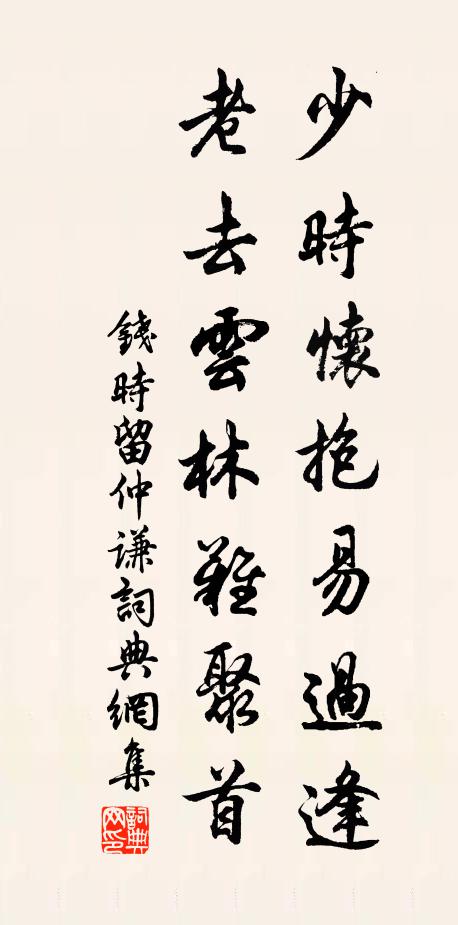 少時懷抱易過逢
老去雲林難聚首
錢時留仲謙詞典網集
詞典網印